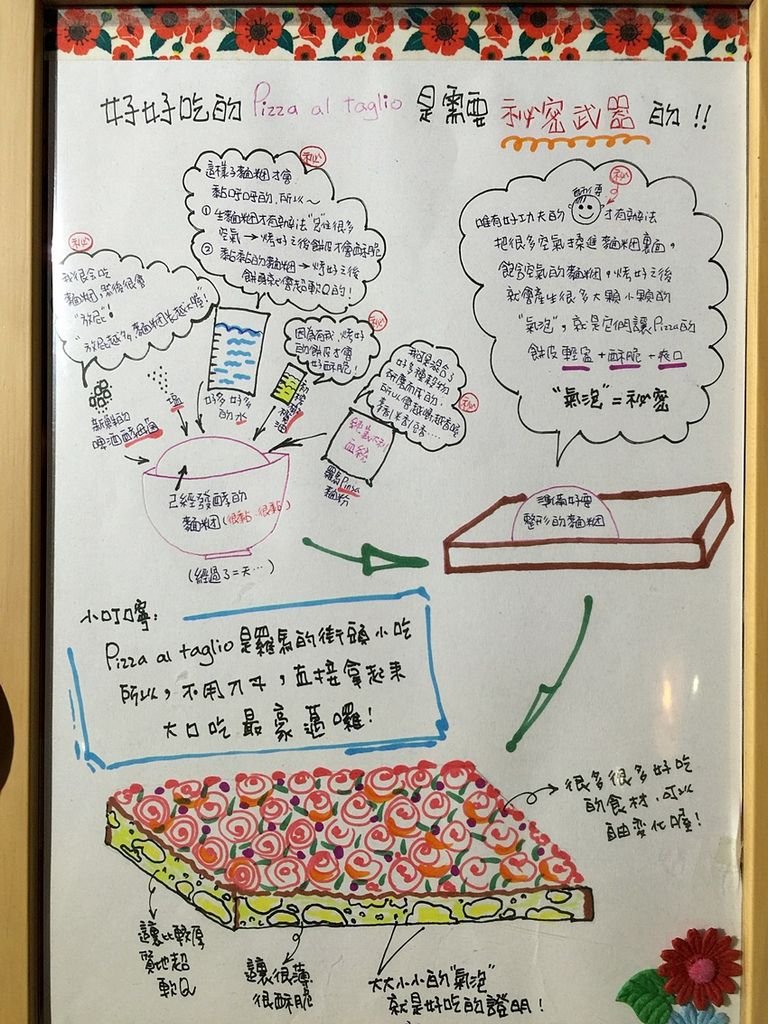 好好吃的 Pizza al taglio 是需要 秘密武器 的!!
秘
這樣子麵糰才會
黏呼呼的,所以~
① 生麵糰才有辦法"包"住很多
空氣 → 烤好之後餅皮才會酥脆
② 黏黏的麵糰 → 烤好之後
餅更會超軟Q的!
秘
我很會吃
麵糰,然後很會
"放屁"!
"放屁越多,麵糰長越大喔!"
秘
因為有我,烤好
的餅皮才會
好酥脆!
秘
我是混合了
好多種穀物
研磨而成的,
所以會越嚼越香喔
秘
師傅
唯有好功夫的 才有辦法
把很多空氣揉進麵糰裏面,
飽含空氣的麵糰,烤好之後
就會產生很多大顆小顆的
"氣泡",就是它們讓Pizza的
餅皮 輕盈 + 酥脆 + 爽口
"氣泡" = 秘密
新鮮的
啤酒酵母菌
鹽
好多好多
的水
初榨
橄欖油
羅馬Pinsa
麵粉
已經發酵的
麵糰(很黏、很黏)
(經過了二天…)
準備好要
整形的麵糰
小叮嚀:
Pizza al taglio是羅馬的街頭小吃
所以,不用刀叉,直接拿起來
大口吃最豪邁囉!
很多很多好吃
的食材,可以
自由變化喔!
讓比較厚
質地超
軟Q
讓很薄
很酥脆
大大小小的"氣泡"
就是好吃的證明!